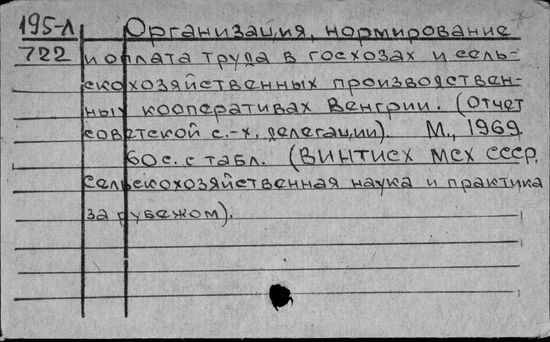 195-Л Организация, нормирование
722 и оплата труда в госхозах и сель-
скохозяйственных производствен-
ных кооперативах Венгрии. (Отчет
советской с.-х. делегации). М., 1969.
60 с. с табл. (ВИНТИСХ МСХ СССР.
Сельскохозяйственная наука и практика
за рубежом).